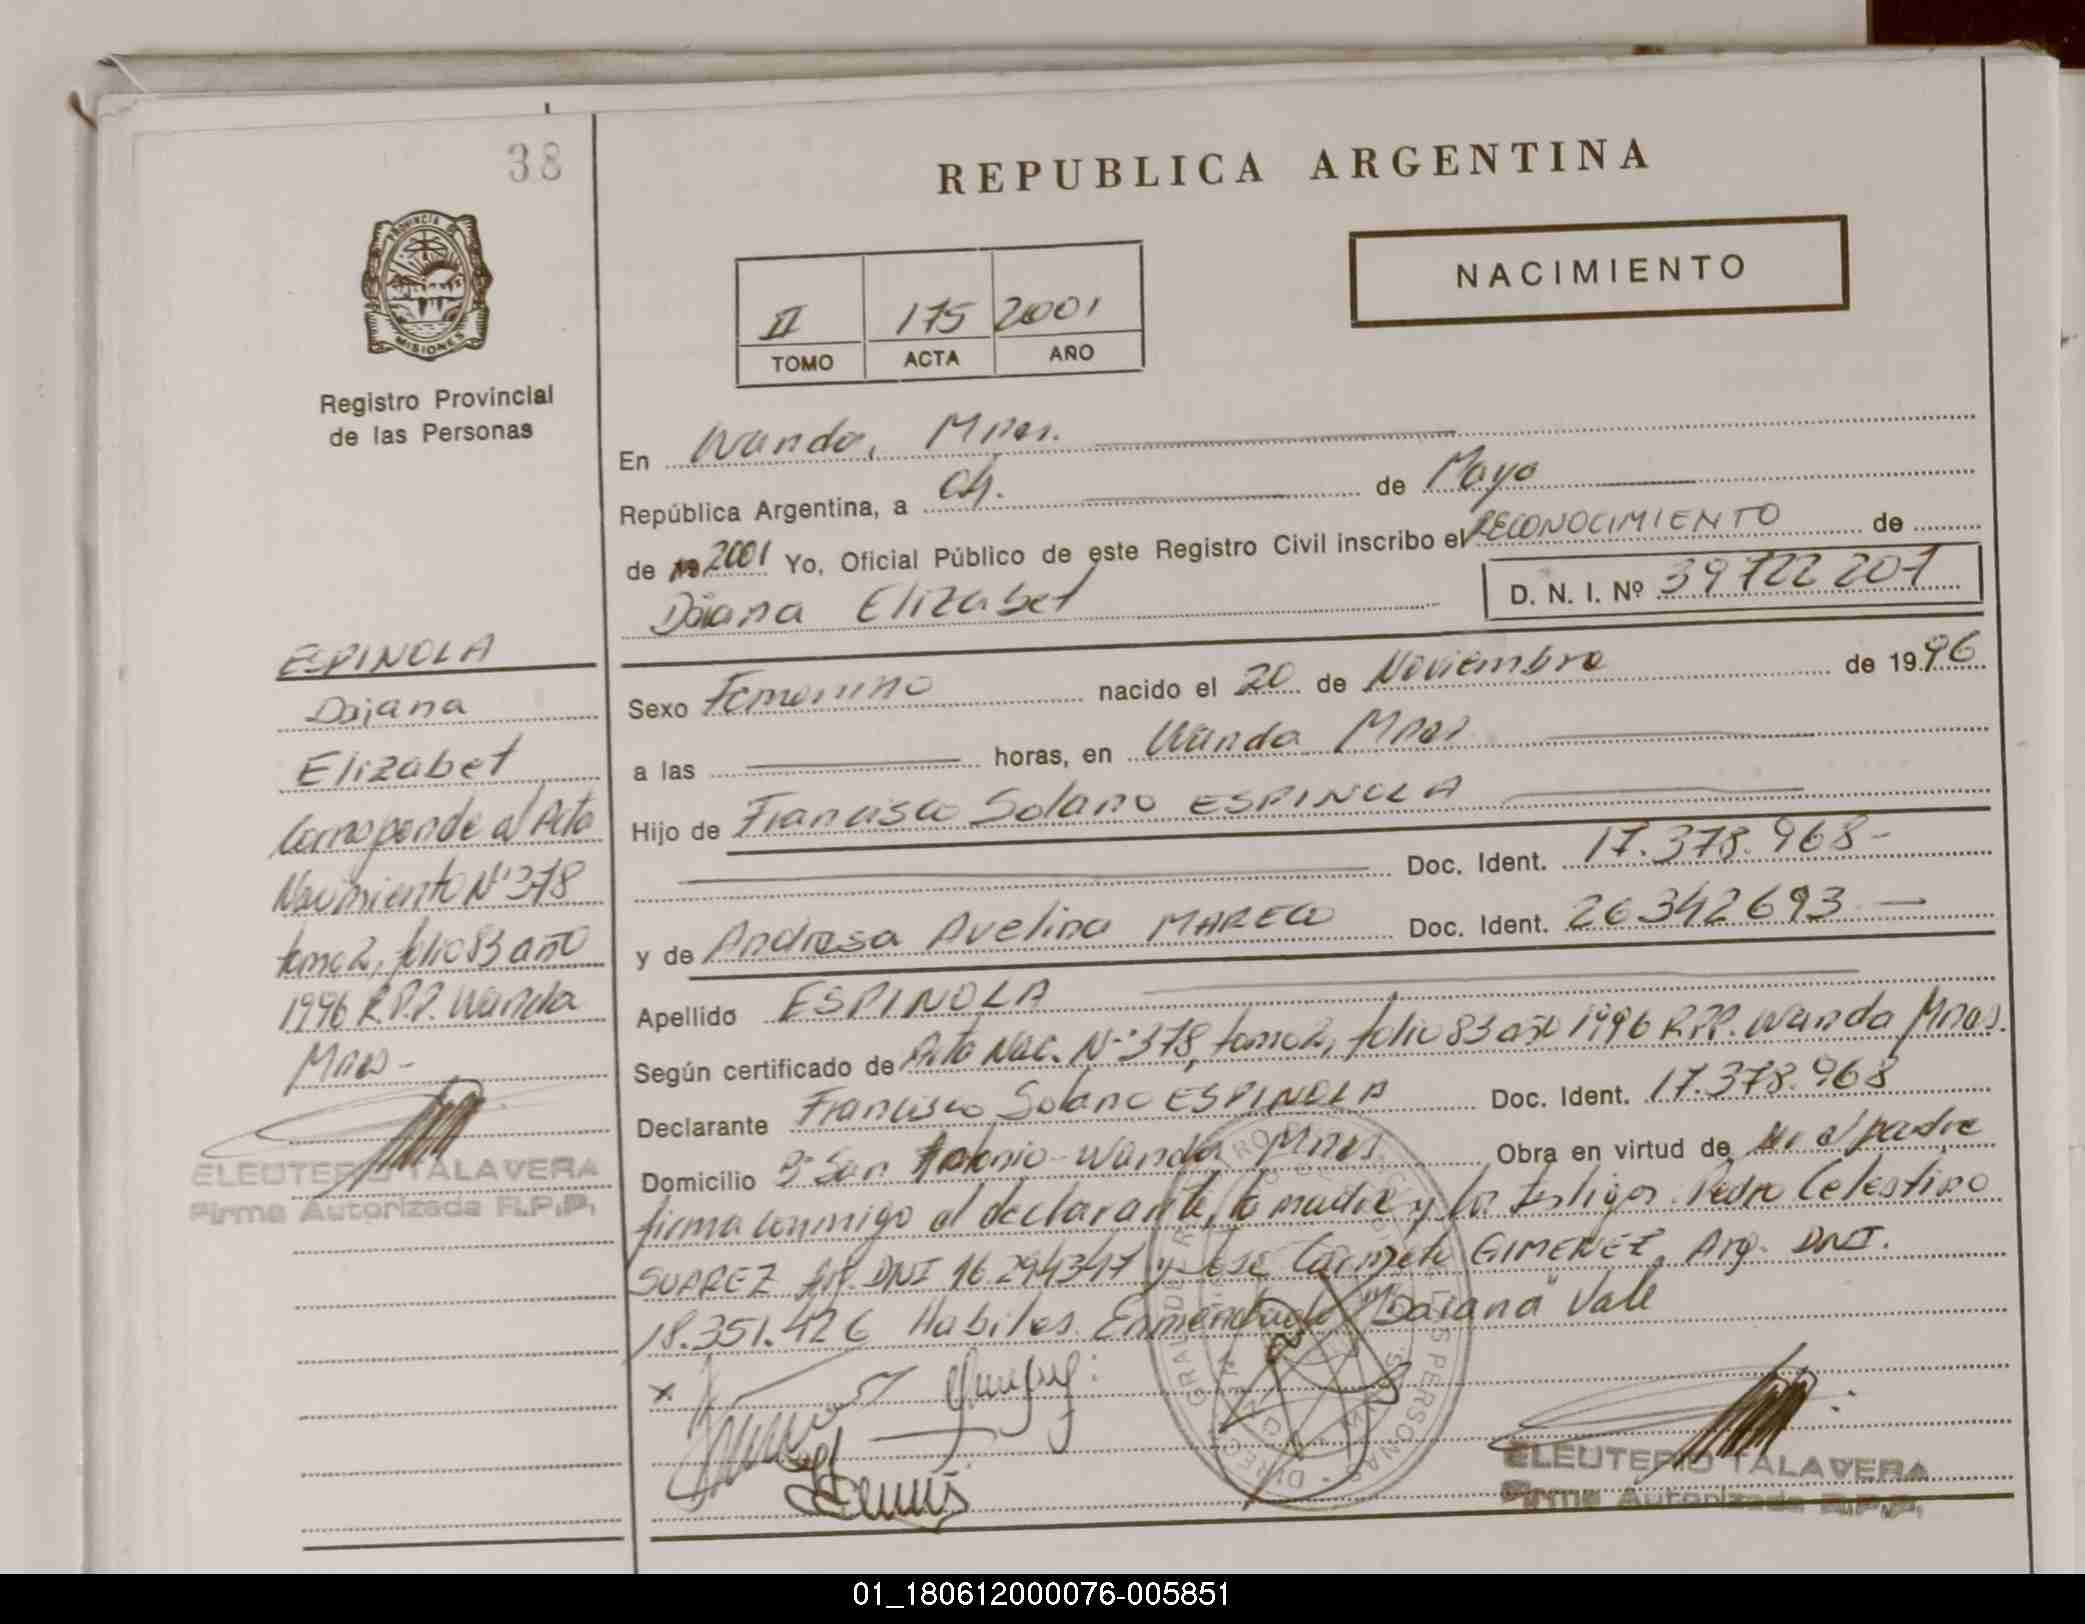 38
REPUBLICA ARGENTINA
PROVINCIA DE
MISIONES
Registro Provincial
de las Personas
NACIMIENTO
II 175 2001
TOMO ACTA AÑO
En Wanda, Mnes.
República Argentina, a 04. de Mayo
de 2001 Yo, Oficial Público de este Registro Civil inscribo el RECONOCIMIENTO de
Daiana Elizabet D. N. I. Nº 39722207
Sexo Femenino nacido el 20 de Noviembre de 1996
a las horas, en Wanda Mnes
Hijo de Francisco Solano ESPINOLA
Doc. Ident. 17.378.968-
y de Andresa Avelina MARECO Doc. Ident. 26342693
Apellido ESPINOLA
Según certificado de Acta Nac. Nº 378, tomo 2, folio 83 año 1996 R.P.P. Wanda Mnes.
Declarante Francisco Solano ESPINOLA Doc. Ident. 17.378.968
Domicilio Bº San Antonio - Wanda Mnes Obra en virtud de ser el padre
firma conmigo el declarante, la madre y los testigos Pedro Celestino
SUAREZ Arg. DNI 16294347 y José GIMENEZ, Arg. DNI.
18.351.426 Habiles. Enmendado "Daiana" Vale
ESPINOLA
Daiana
Elizabet
Corresponde al Acta
Nacimiento Nº 378
tomo 2, folio 83 año
1996 R.P.P. Wanda
Mnes -
ELEUTERIO TALAVERA
Firma Autorizada R.P.P.
ELEUTERIO TALAVERA
Firma Autorizada R.P.P.
01_180612000076-005851